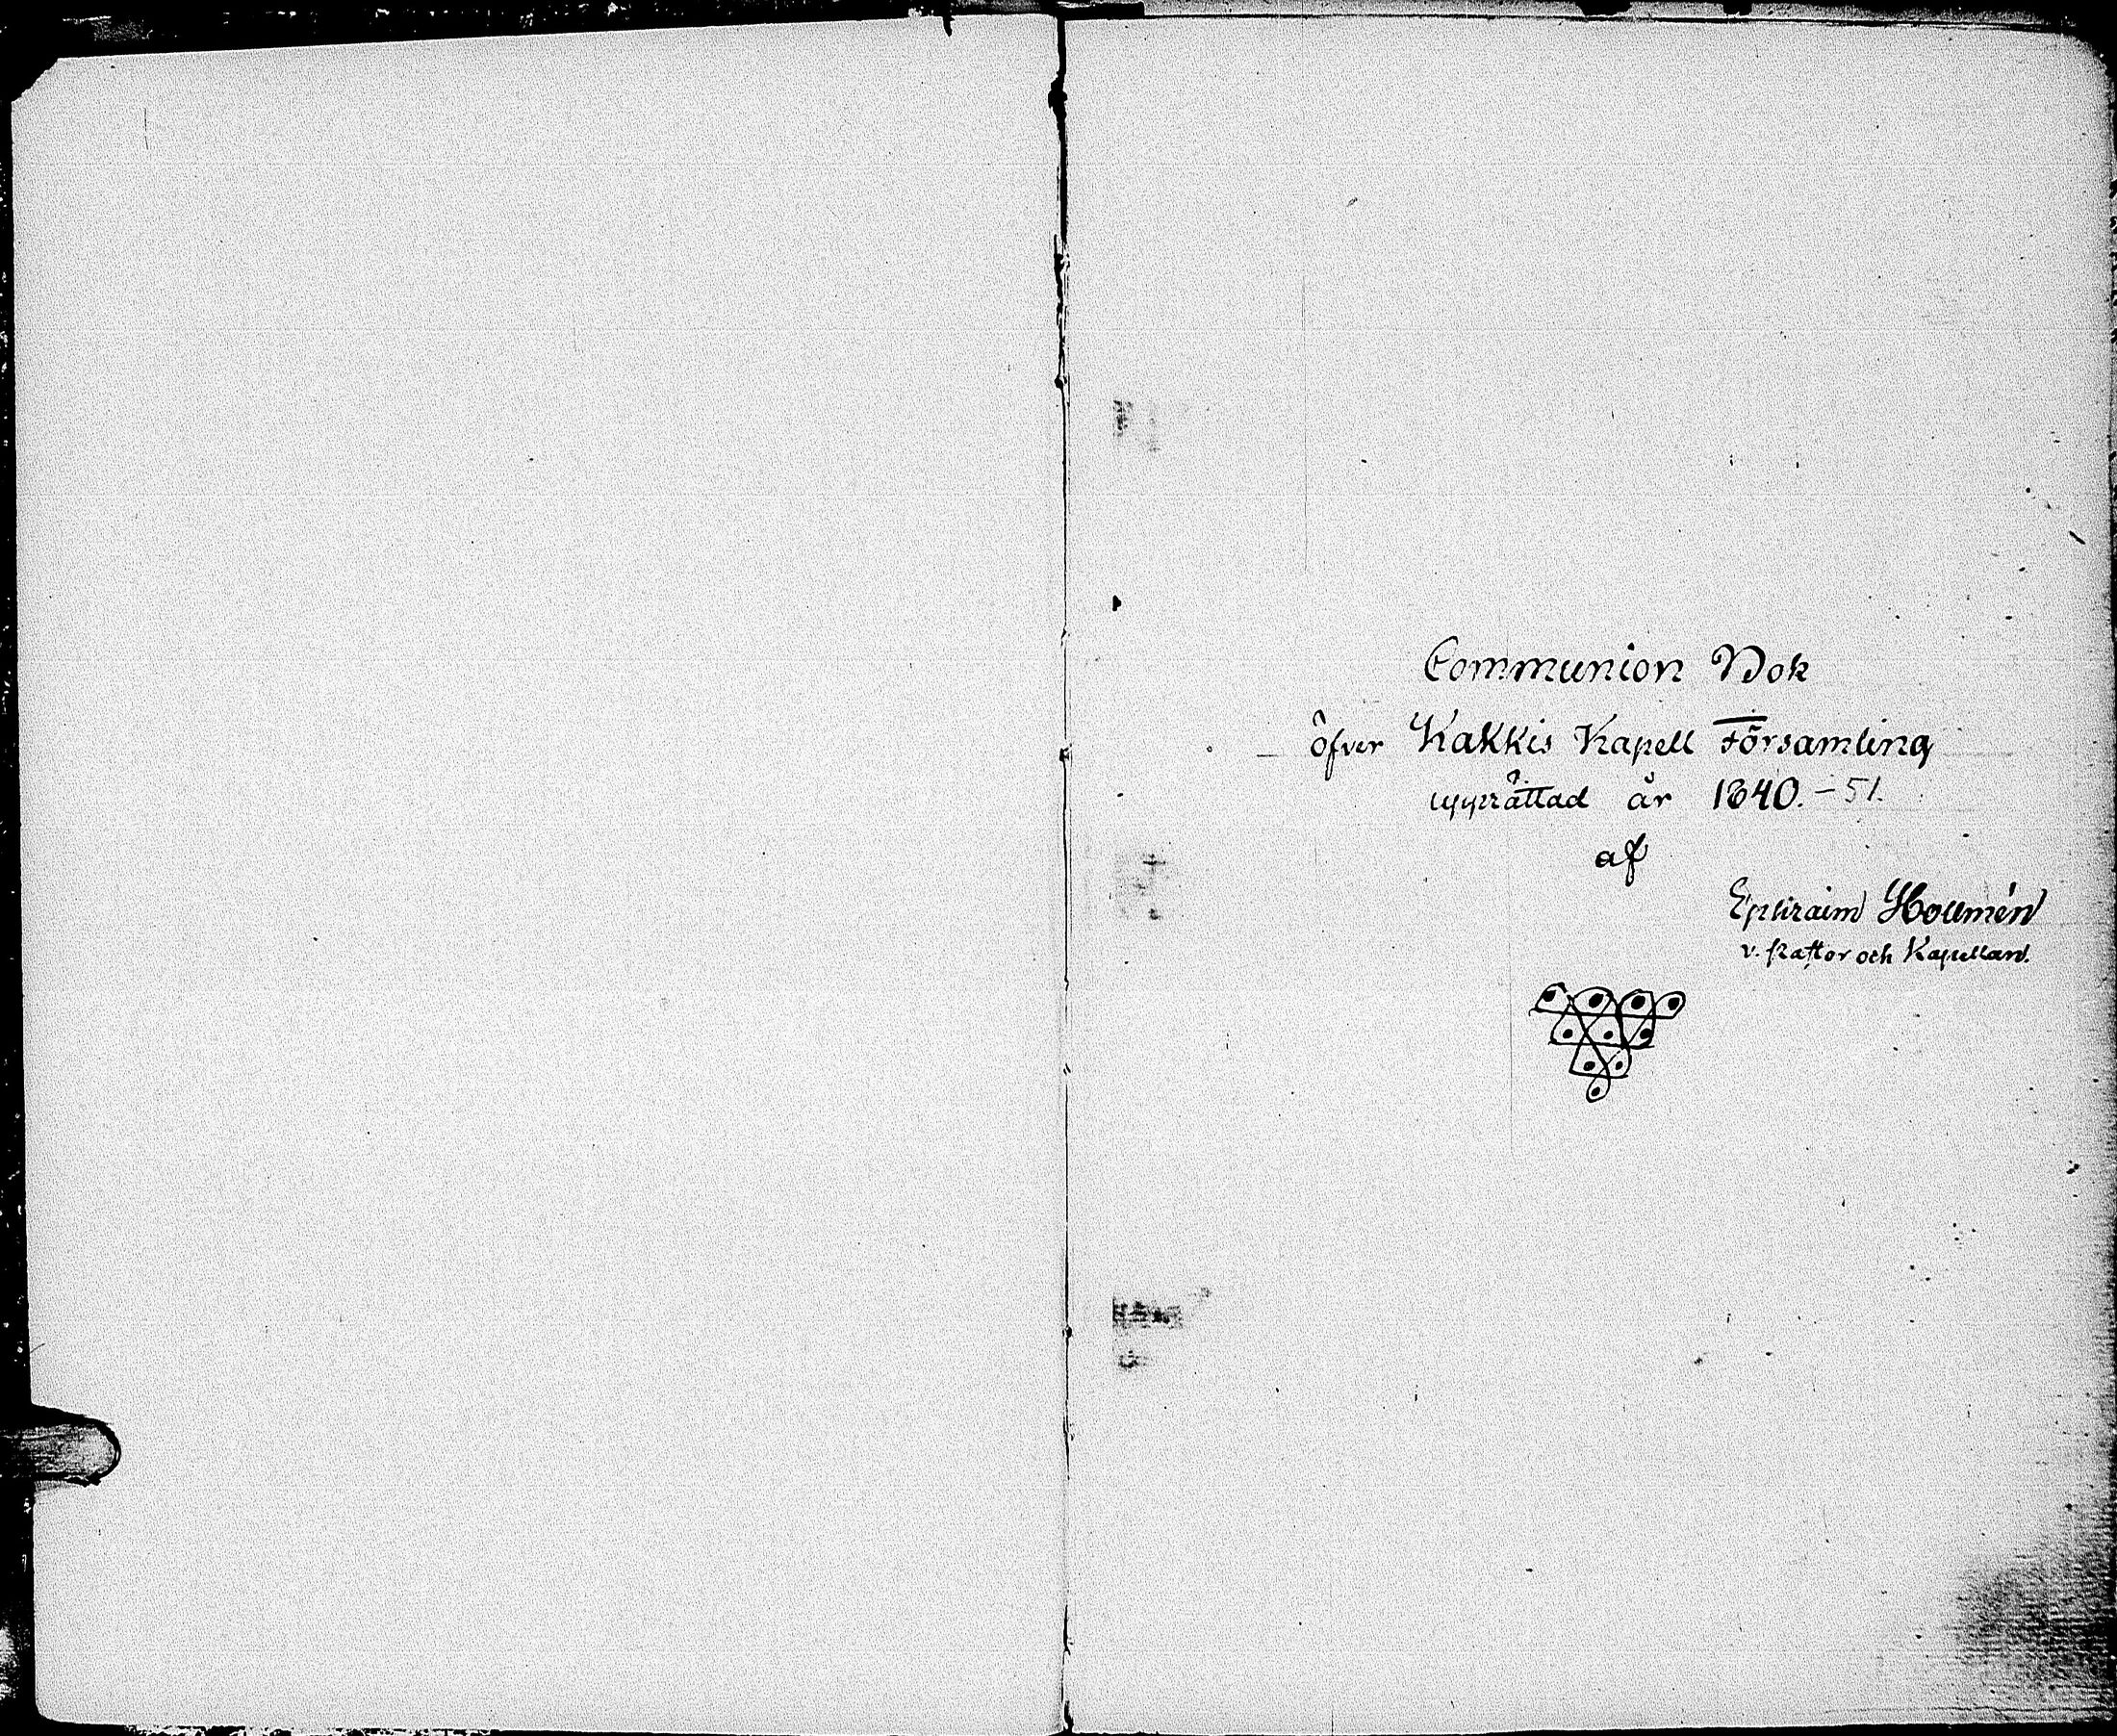 Communion Bok
öfver Kakkis Kapell Församling
upprättad år 1840. - 51.
af
Ephraim Hollmén
v. pastor och Kapellan.